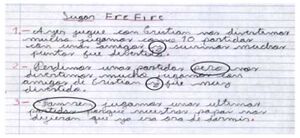 Jugar Free Fire
1.- Ayer jugue con Cristian nos divertimos
mucho jugamos como 10 partidas
con unas amigas y subimos muchos
puntos fue divertido.
2.- Perdimos unas partidas pero nos
divertimos mucho jugamos con
amigos de Cristian y fue muy
divertido.
3.- Tambien jugamos unas ultimas
partidas porque nuestros papas nos
dijeron que ya era ora de dormir.